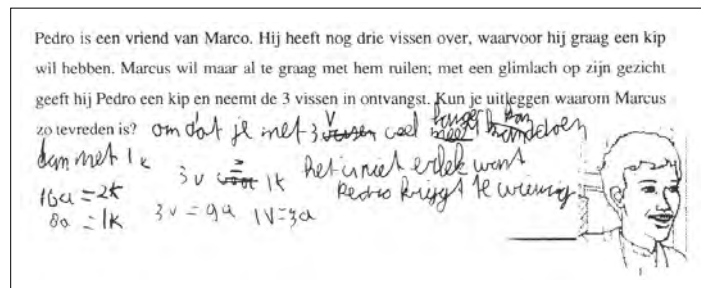 Pedro is een vriend van Marco. Hij heeft nog drie vissen over, waarvoor hij graag een kip
wil hebben. Marcus wil maar al te graag met hem ruilen; met een glimlach op zijn gezicht
geeft hij Pedro een kip en neemt de 3 vissen in ontvangst. Kun je uitleggen waarom Marcus
zo tevreden is? om dat je met 3 v vissen veel langer kan doen
dan met 1k
3v = 1k het is niet erlek want
Pedro krijgt te wienig
16a = 2k
8a = 1k 3v = 9a 1v = 3a